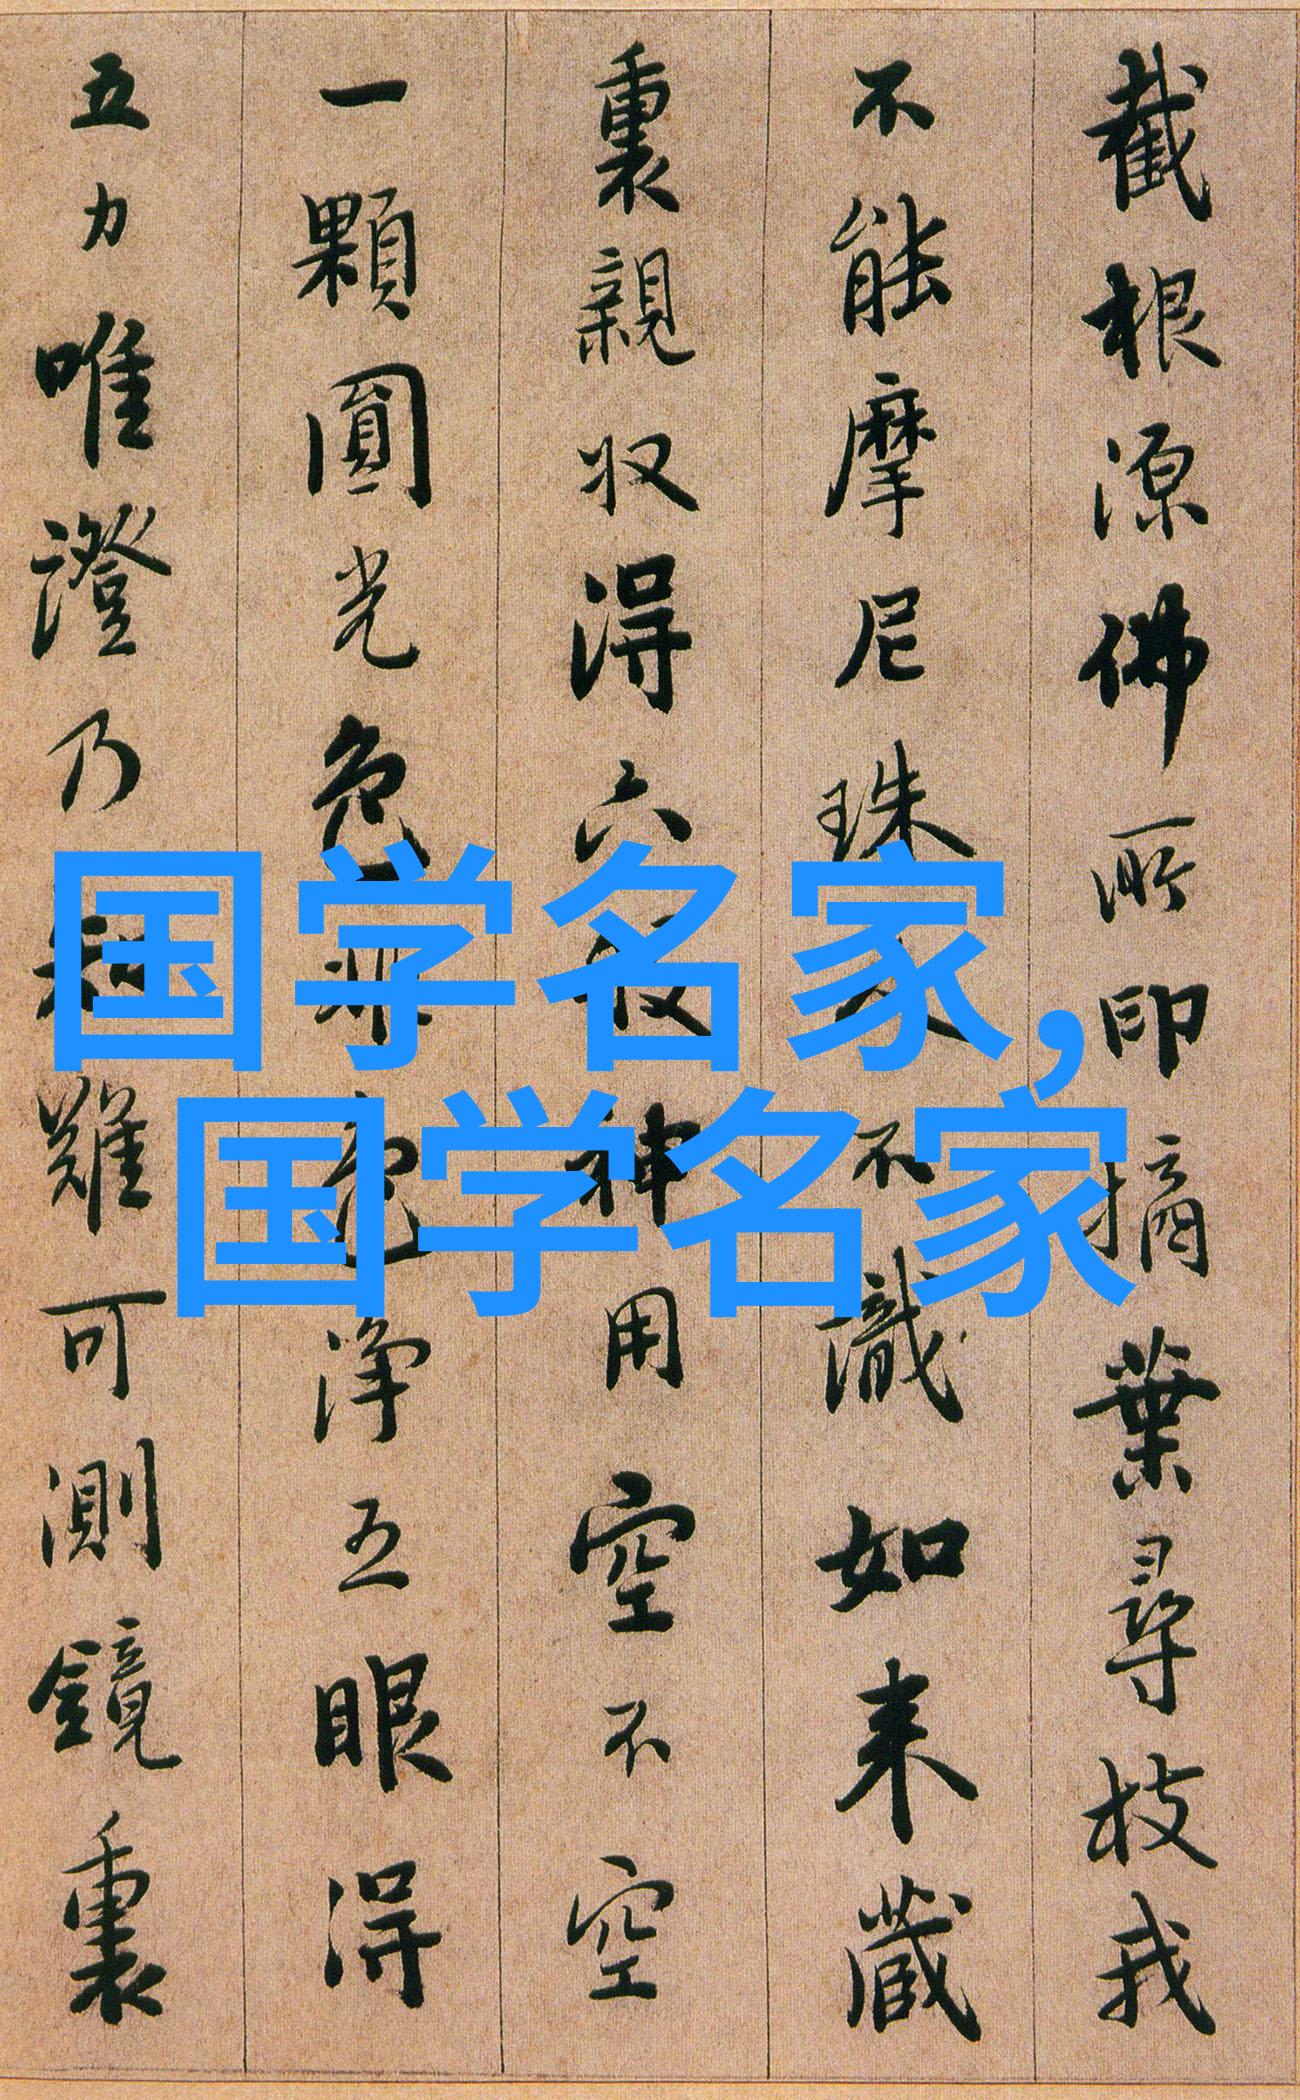 截根源佛所印摘葉尋枝我
不能摩尼珠人不識如来藏
裏親収得六般神用空不空
一顆圓光色非色淨五眼得
五力唯證乃知難可測鏡裏
国学名家,
国学名家